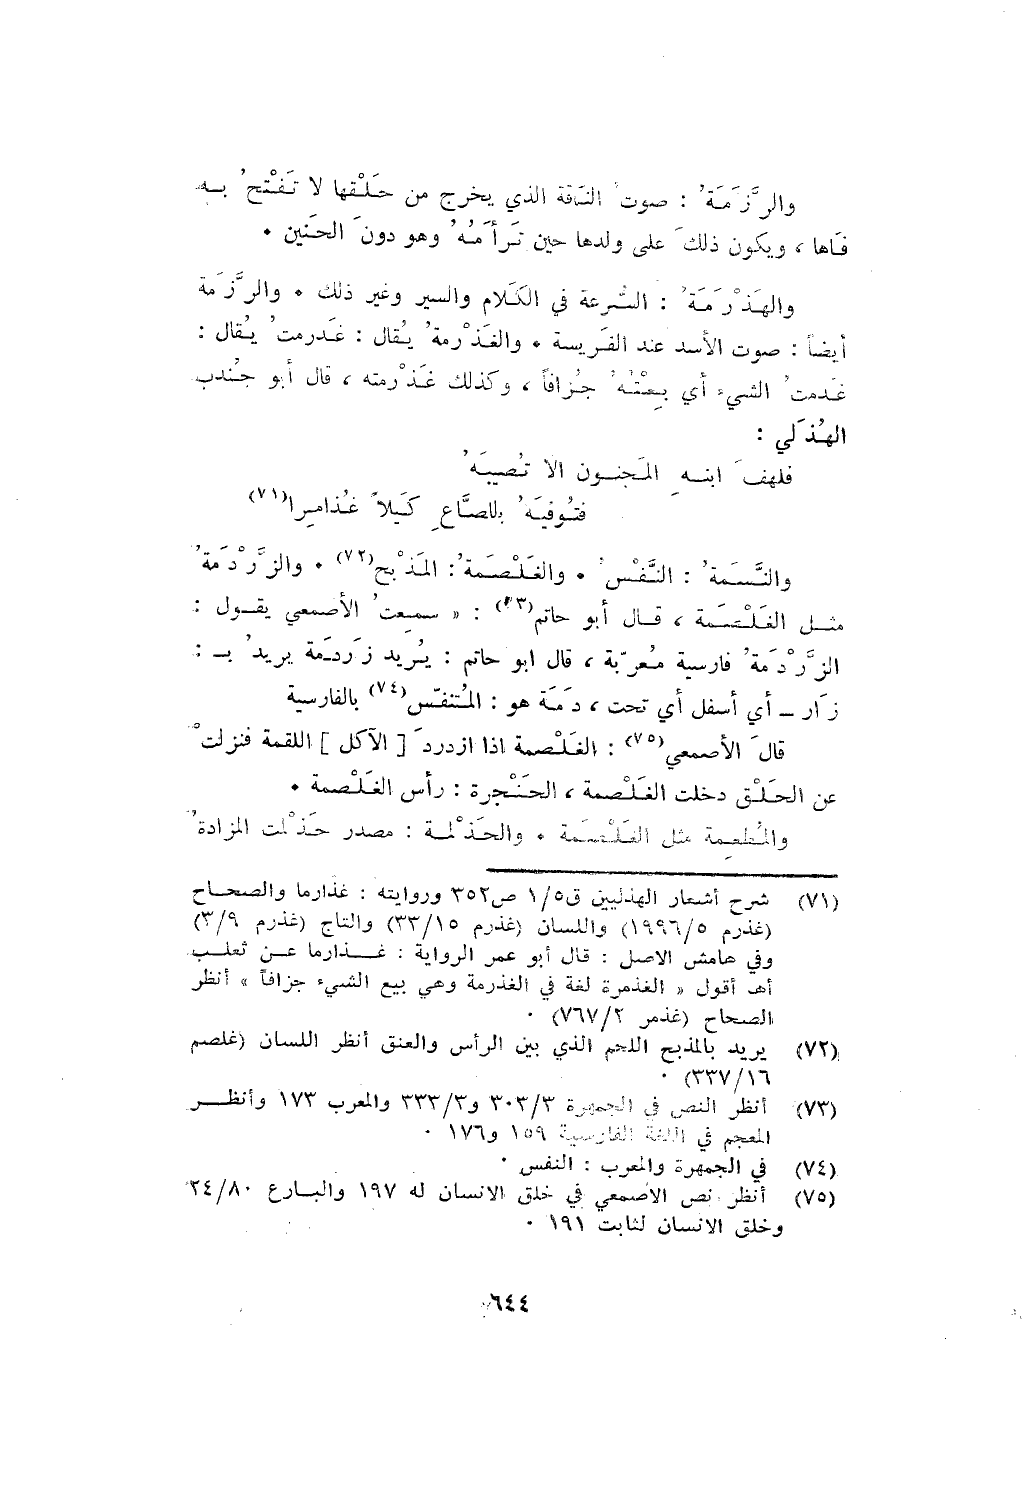 والرَّزَمَةُ : صوتُ النّاقة الذي يخرج من حَلْقها لا تَفْتحُ بـه
فاها ، ويكون ذلكَ على ولدها حين تَرأَمُهُ وهو دونَ الحَنين ٠
والهَذْرَمَةُ : السُّرعة في الكَلام والسير وغير ذلك ٠ والرَّزَمة
أيضاً : صوت الأسد عند الفَريسة ٠ والغَذْرمةُ يُقال : غَدرمتُ يُقال :
غَدمتُ الشيء أي بِعْتُهُ جُزافاً ، وكذلك غَذْرمته ، قال أبو جُندب
الهُذَلي :
فلهفَ ابنــهِ المَجنــون الا تُصيبَهُ
فتُوفيَهُ بالصَّاعِ كَيلاً غُذامِرا(٧١)
والنَّسَمةُ : النَّفْسُ ٠ والغَلْصَمةُ : المَذْبح(٧٢) ٠ والزَّرْدَمةُ
مثــل الغَلْصَمَة ، قــال أبو حاتم(٧٣) : « سـمِعتُ الأصمعي يقــول :
الزَّرْدَمَةُ فارسية مُعرّبة ، قال ابو حاتم : يُريد زَردَمة يريدُ بــ :
زَار ــ أي أسفل أي تحت ، دَمَة هو : المُتنفّس(٧٤) بالفارسية
قالَ الأصمعي(٧٥) : الغَلْصمة اذا ازدردَ [ الآكل ] اللقمة فنزلتْ
عن الحَلْق دخلت الغَلْصمة ، الحَنْجرة : رأس الغَلْصمة ٠
والمُطعِمة مثل الغَلْصَمَة ٠ والحَذْلمة : مصدر حَذْلمت المزادةُ
(٧١) شرح أشعار الهذليين ق٥/١ ص٣٥٢ وروايته : غذارما والصحـاح
(غذرم ١٩٩٦/٥) واللسان (غذرم ٣٣/١٥) والتاج (غذرم ٣/٩)
وفي هامش الاصل : قال أبو عمر الرواية : غــذارما عــن ثعلـب
أهـ أقول « الغذمرة لغة في الغذرمة وهي بيع الشيء جزافاً » أنظر
الصحاح (غذمر ٧٦٧/٢) ٠
(٧٢) يريد بالمذبح اللحم الذي بين الرأس والعنق أنظر اللسان (غلصم
٣٣٧/١٦) ٠
(٧٣) أنظر النص في الجمهرة ٣٠٣/٣ و٣٣٣/٣ والمعرب ١٧٣ وأنظــر
المعجم في اللغة الفارسية ١٥٩ و١٧٦ ٠
(٧٤) في الجمهرة والمعرب : النفس ٠
(٧٥) أنظر نص الاصمعي في خلق الانسان له ١٩٧ والبـارع ٢٤/٨٠
وخلق الانسان لثابت ١٩١ ٠
٦٤٤